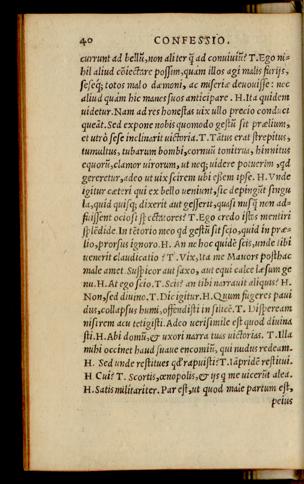 40 CONFESSIO.
currunt ad bellũ, non aliter q̃ ad conuiuiũ? T. Ego ni-
hil aliud cõiectare possim, quàm illos agi malis furijs,
seseq; totos malo dæmoni, ac miseriæ deuouisse: nec
aliud quàm hic manes suos anticipare. H. Ita quidem
uidetur. Nam ad res honestas uix ullo precio conduci
queãt. Sed expone nobis quomodo gestũ sit prælium,
et utrò sese inclinarit uictoria. T. Tãtus erat strepitus,
tumultus, tubarum bombi, cornuũ tonitrus, hinnitus
equorũ, clamor uirorum, ut neq; uidere potuerim, qd
gereretur, adeo ut uix scirem ubi essem ipse. H. Vnde
igitur cæteri qui ex bello ueniunt, sic depingũt singu
la, quid quisq; dixerit aut gesserit, quasi nusq̃ non ad-
fuissent ociosi spectatores? T. Ego credo istos mentiri
splẽdide. In tẽtorio meo qd gestũ sit scio, quid in præ-
lio, prorsus ignoro. H. An ne hoc quidẽ scis, unde tibi
uenerit claudicatio? T. Vix, ita me Mauors posthac
male amet. Suspicor aut saxo, aut equi calce læsum ge
nu. H. At ego scio. T. Scis? an tibi narrauit aliquis? H.
Non, sed diuino. T. Dic igitur. H. Quum fugeres paui
dus, collapsus humi, offendisti in silicẽ. T. Dispeream
nisi rem acu tetigisti. Adeo uerisimile est quod diuina
sti. H. Abi domũ, & uxori narra tuas uictorias. T. Illa
mihi occinet haud suaue encomiũ, qui nudus redeam.
H. Sed unde restitues qd rapuisti? T. Iãpridẽ restitui.
H Cui? T. Scortis, œnopolis, & ijs q me uicerũt alea.
H. Satis militariter. Par est, ut quod male partum est,
peius